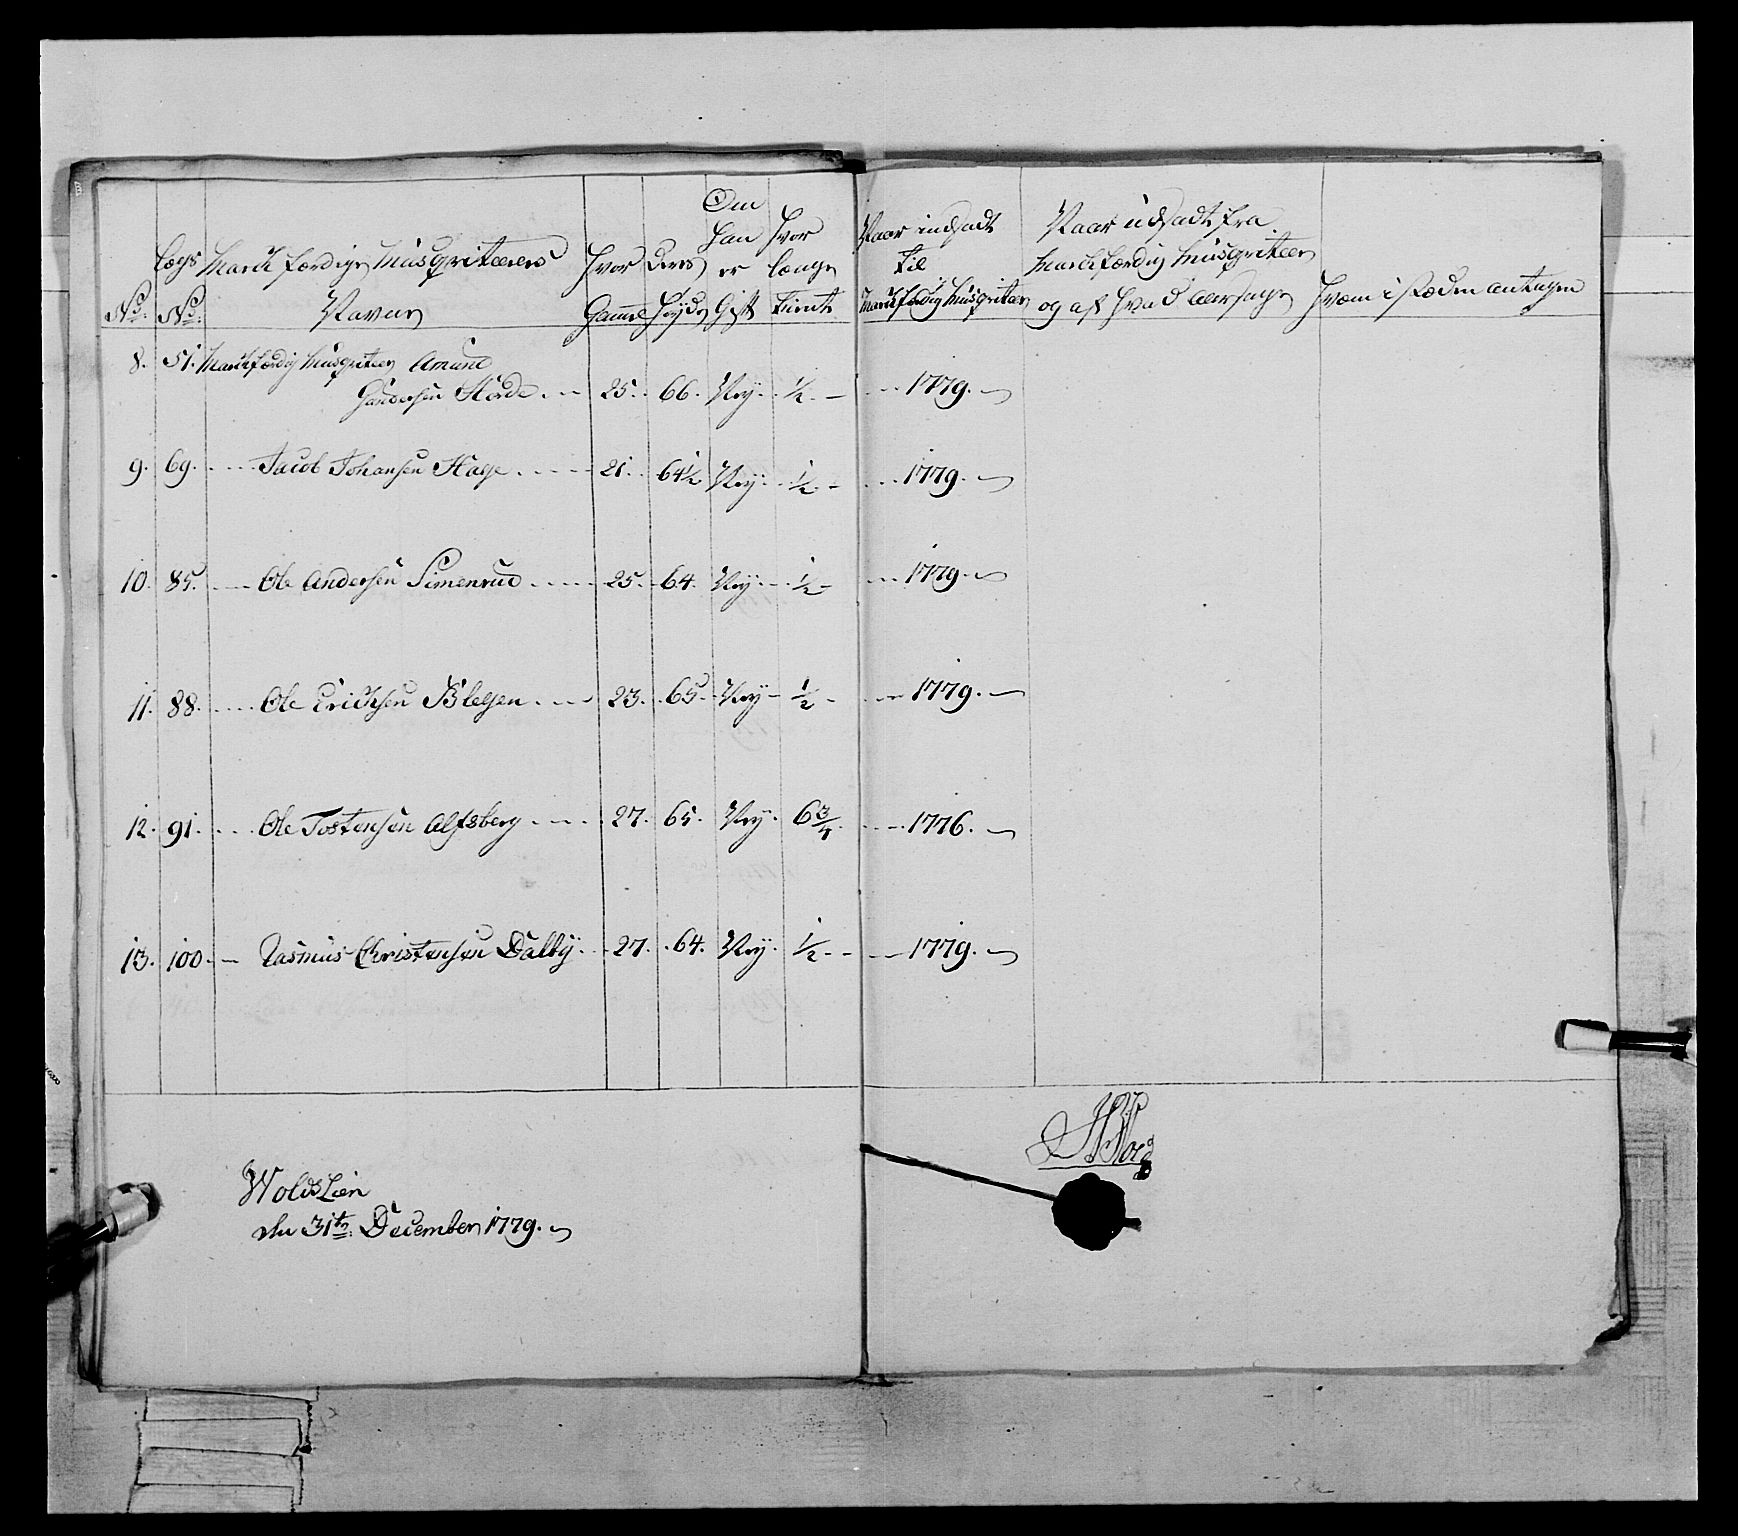 No: Lægs No: March færdige Musqviteerers Navne Hvor Gamle Deres Høyde Om Han er Gift Hvor længe tient Naar indsadt til Marchfærdig Musqviteer Naar udsadt fra Marchfærdig Musqviteer og af hvad Aarsage Hvem i Stæden antagen
8. 51. Marchfærdig Musqviteer Amund
Gundersen Horde 25. 66. Ney. ½. 1779.
9. 69. Jacob Johansen Hage 21. 64½ Ney. ½ 1779.
10. 85. Ole Andersen Simenrud 25. 64. Ney ½ 1779.
11. 88. Ole Ericksen Blegen 23. 65. Ney ½ 1779.
12. 91. Ole Tostensen Alfsberg 27. 65. Ney. 6¾. 1776.
13. 100. Rasmus Christensen Dalby 27. 64. Ney. ½ 1779.
WoldsLøen
den 31te: December 1779.